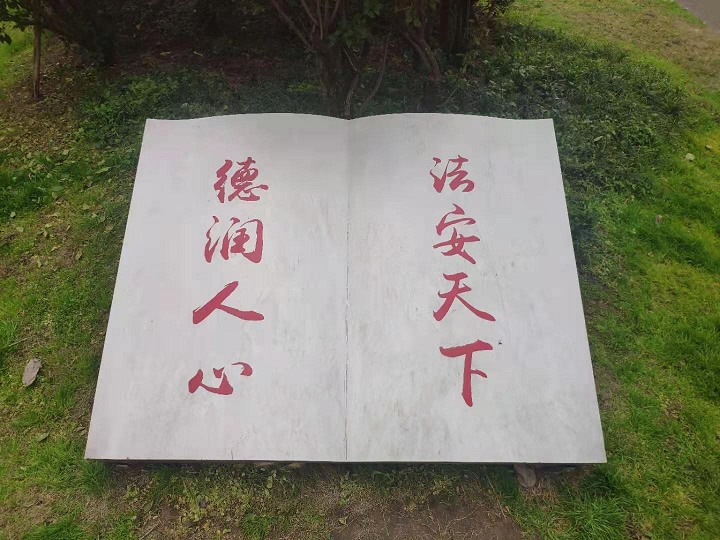 法安天下
德润人心